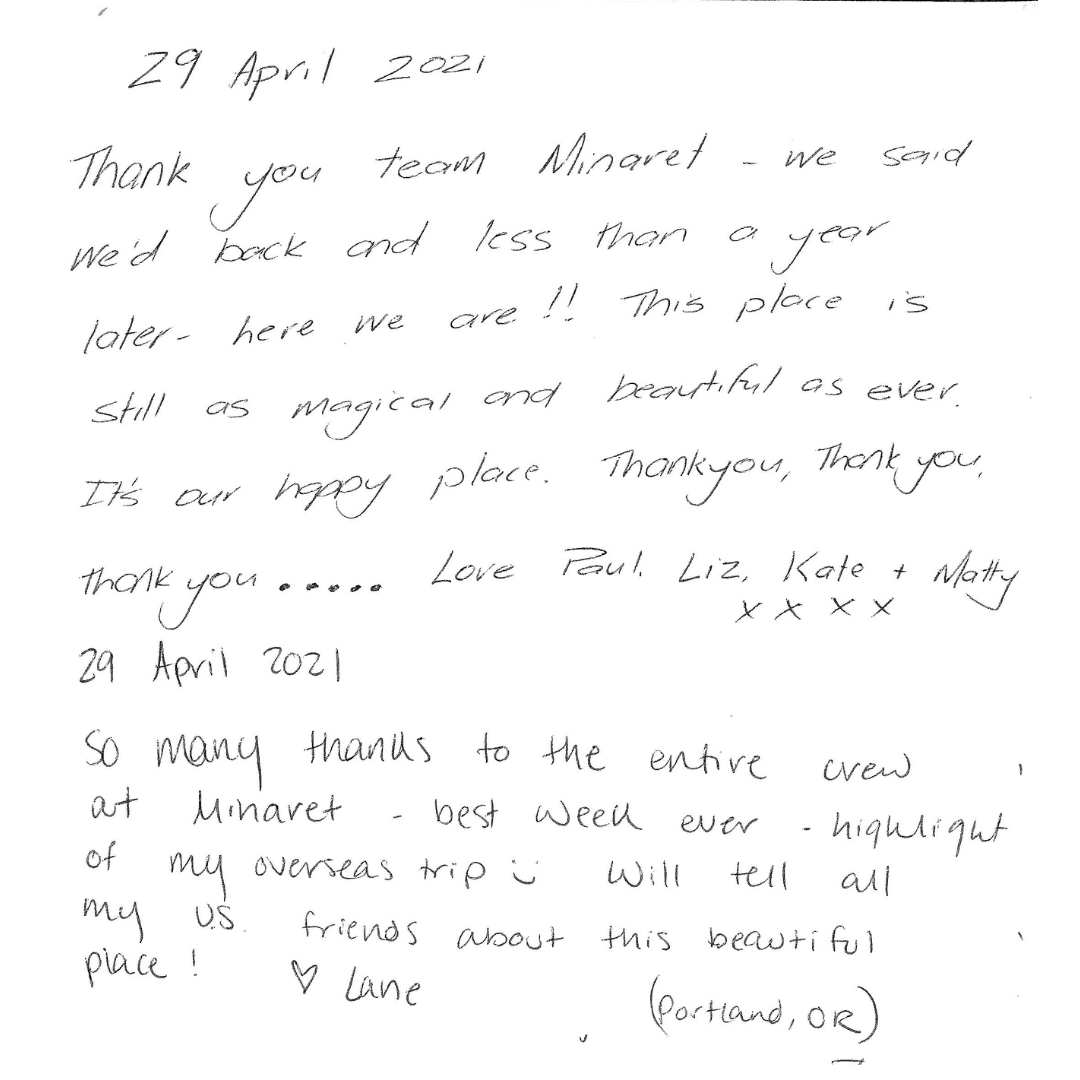 29 April 2021
Thank you team Minaret - we said
we'd back and less than a year
later - here we are!! This place is
still as magical and beautiful as ever.
It's our happy place. Thankyou, Thank you,
thank you ..... Love Paul, Liz, Kate + Matty
x x x x
29 April 2021
So many thanks to the entire crew
at Minaret - best week ever - highlight
of my overseas trip :) Will tell all
my U.S. friends about this beautiful
place! ♡ Lane (Portland, OR)